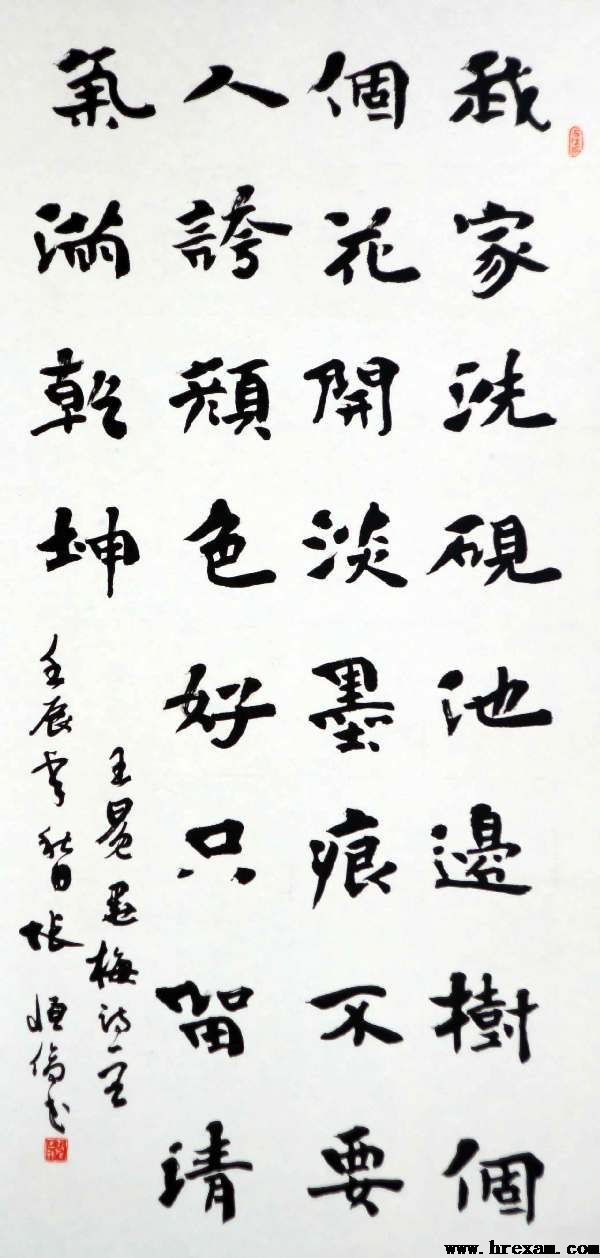 我家洗硯池邊樹個
個花開淡墨痕不要
人誇顏色好只留清
氣滿乾坤
王冕墨梅詩一首
壬辰年秋日張恒书
www.hrexam.com